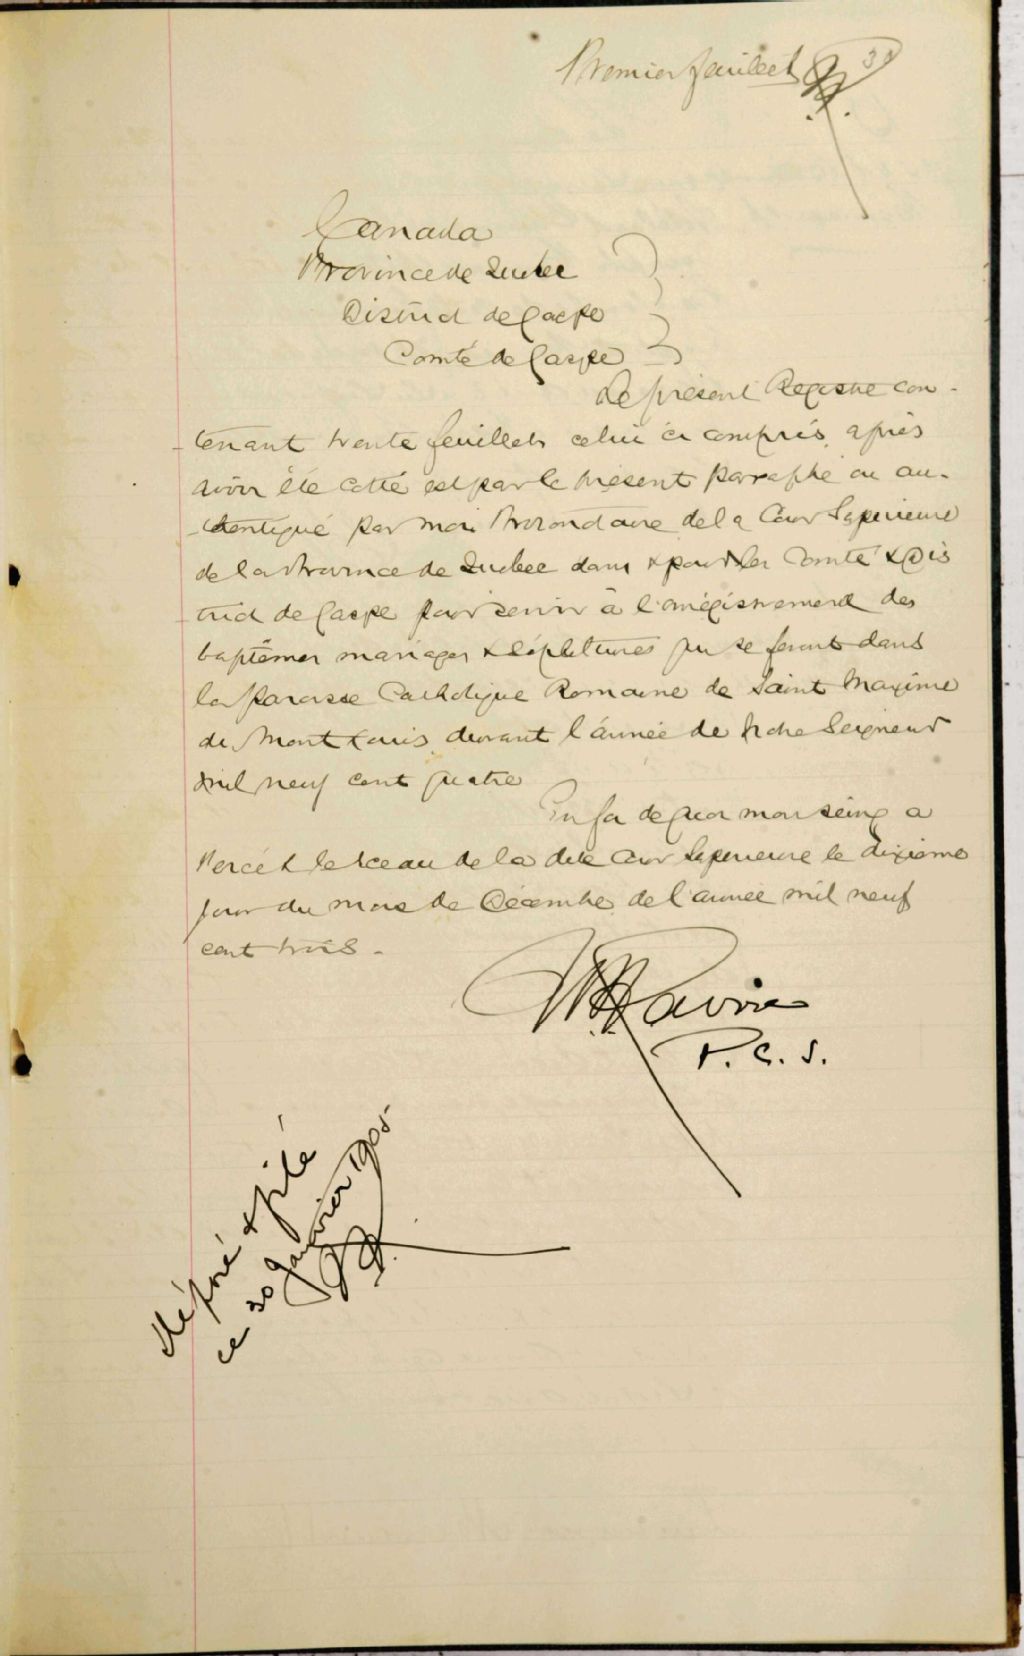 Premier feuillet 30
Canada
Province de Quebec
District de Gaspe
Comté de Gaspe
Le présent Registre con-
tenant trente feuillets celui ci compris, après
avoir été cotté est par le présent paraphé ou au-
thentiqué par moi Protonotaire de la Cour Superieure
de la Province de Quebec dans & pour le Comté & Dis
trict de Gaspe pour servir à l'enrégistrement des
baptêmes mariages & sépultures qui se feront dans
la paroisse Catholique Romaine de Saint Maxime
du Mont Louis durant l'année de Notre Seigneur
mil neuf cent quatre
En foi de quoi mon seing a
Percé & le sceau de la dite Cour Superieure le dixieme
jour du mois de Décembre de l'année mil neuf
cent trois -
P. C. S.
déposé & filé
ce 30 Janvier 1905